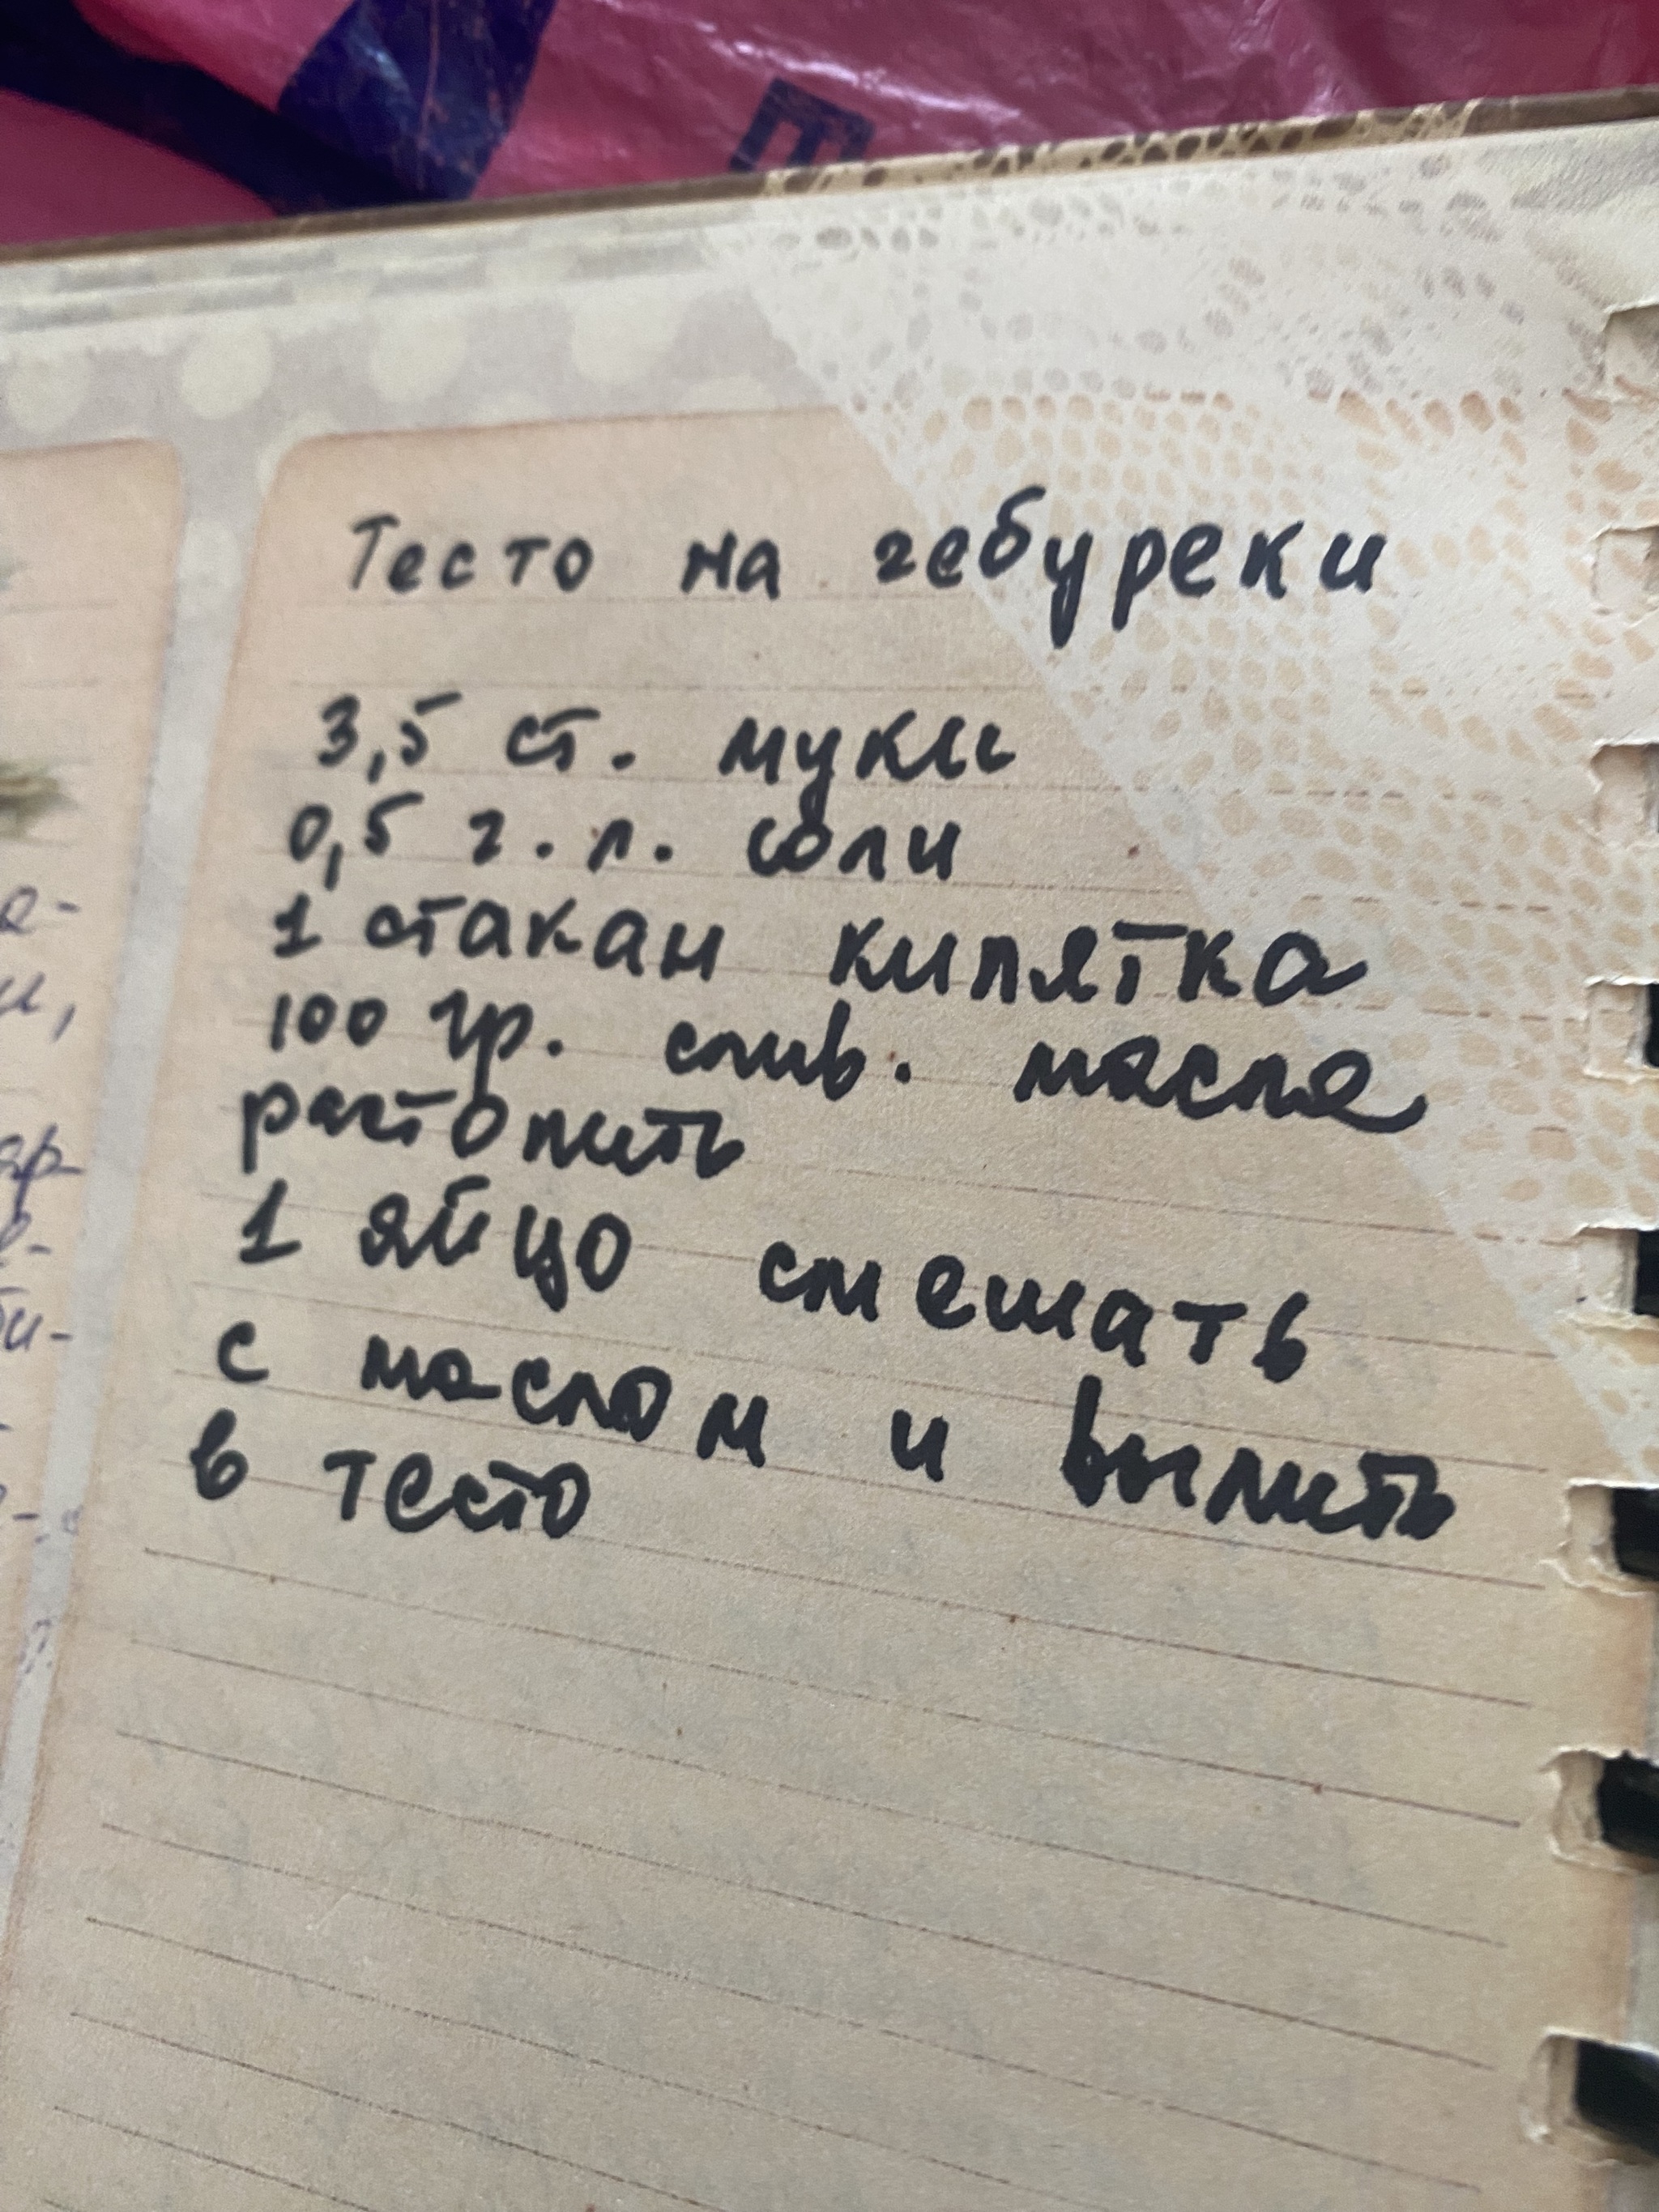 Тесто на чебуреки
3,5 ст. муки
0,5 ч. л. соли
1 стакан кипятка
100 гр. слив. масла
растопить
1 яйцо смешать
с маслом и вылить
в тесто